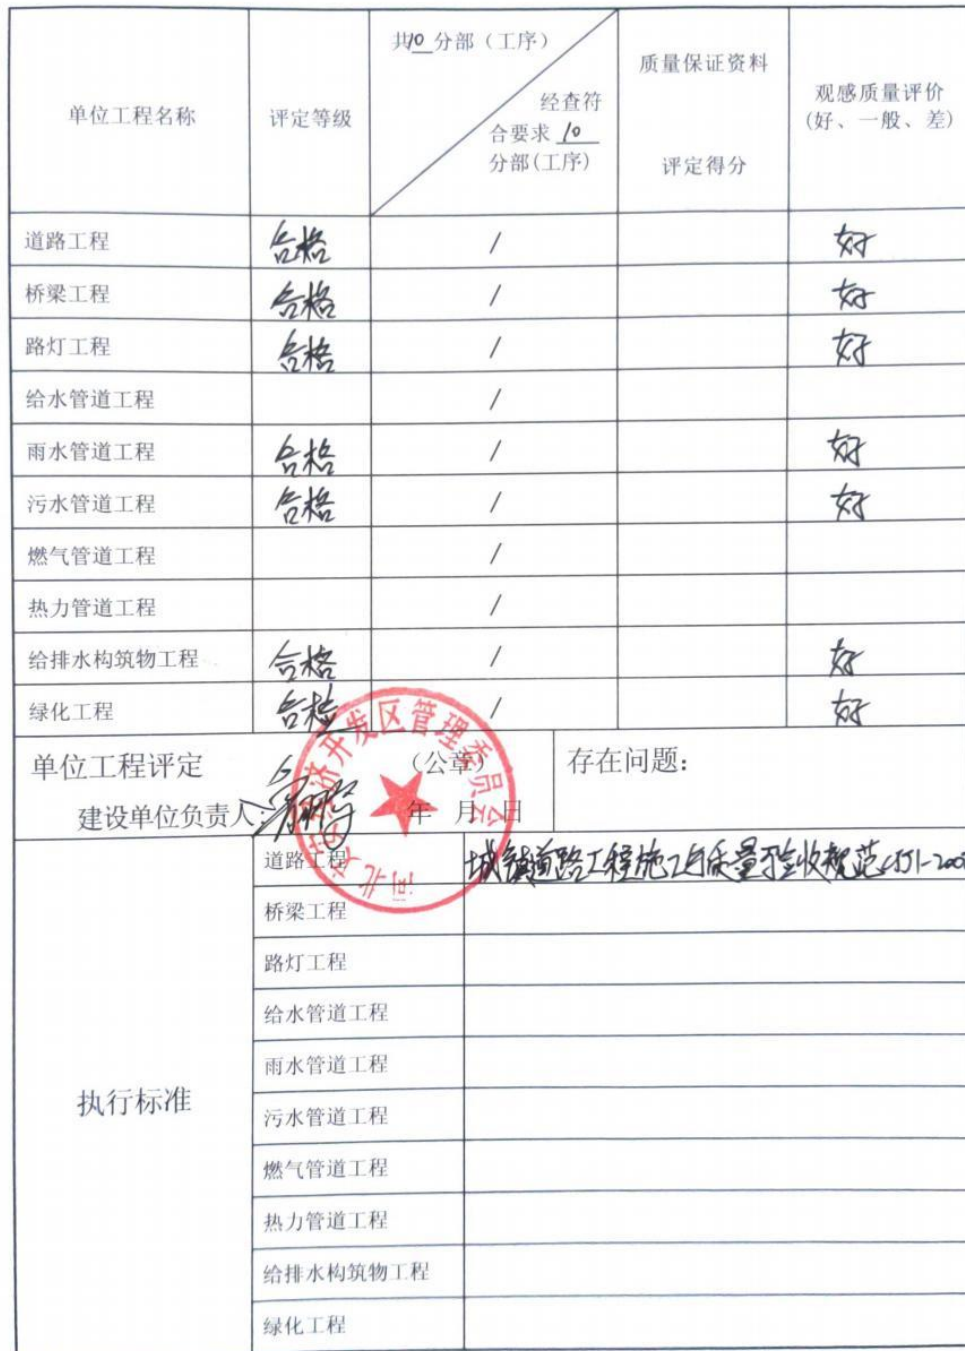 单位工程名称 评定等级 共10分部（工序） 经查符合要求10分部(工序) 质量保证资料 评定得分 观感质量评价(好、一般、差)
道路工程 合格 / 好
桥梁工程 合格 / 好
路灯工程 合格 / 好
给水管道工程 /
雨水管道工程 合格 / 好
污水管道工程 合格 / 好
燃气管道工程 /
热力管道工程 /
给排水构筑物工程 合格 / 好
绿化工程 合格 / 好
单位工程评定 （公章） 存在问题:
建设单位负责人: 年 月 日
经济开发区管理委员会
河北
执行标准
道路工程 城镇道路工程施工与质量验收规范CJJ1-200
桥梁工程
路灯工程
给水管道工程
雨水管道工程
污水管道工程
燃气管道工程
热力管道工程
给排水构筑物工程
绿化工程